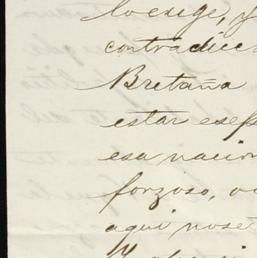 lo exige, y
contradice
Bretaña
estar
esa nacion
forzoso,
aqui no se